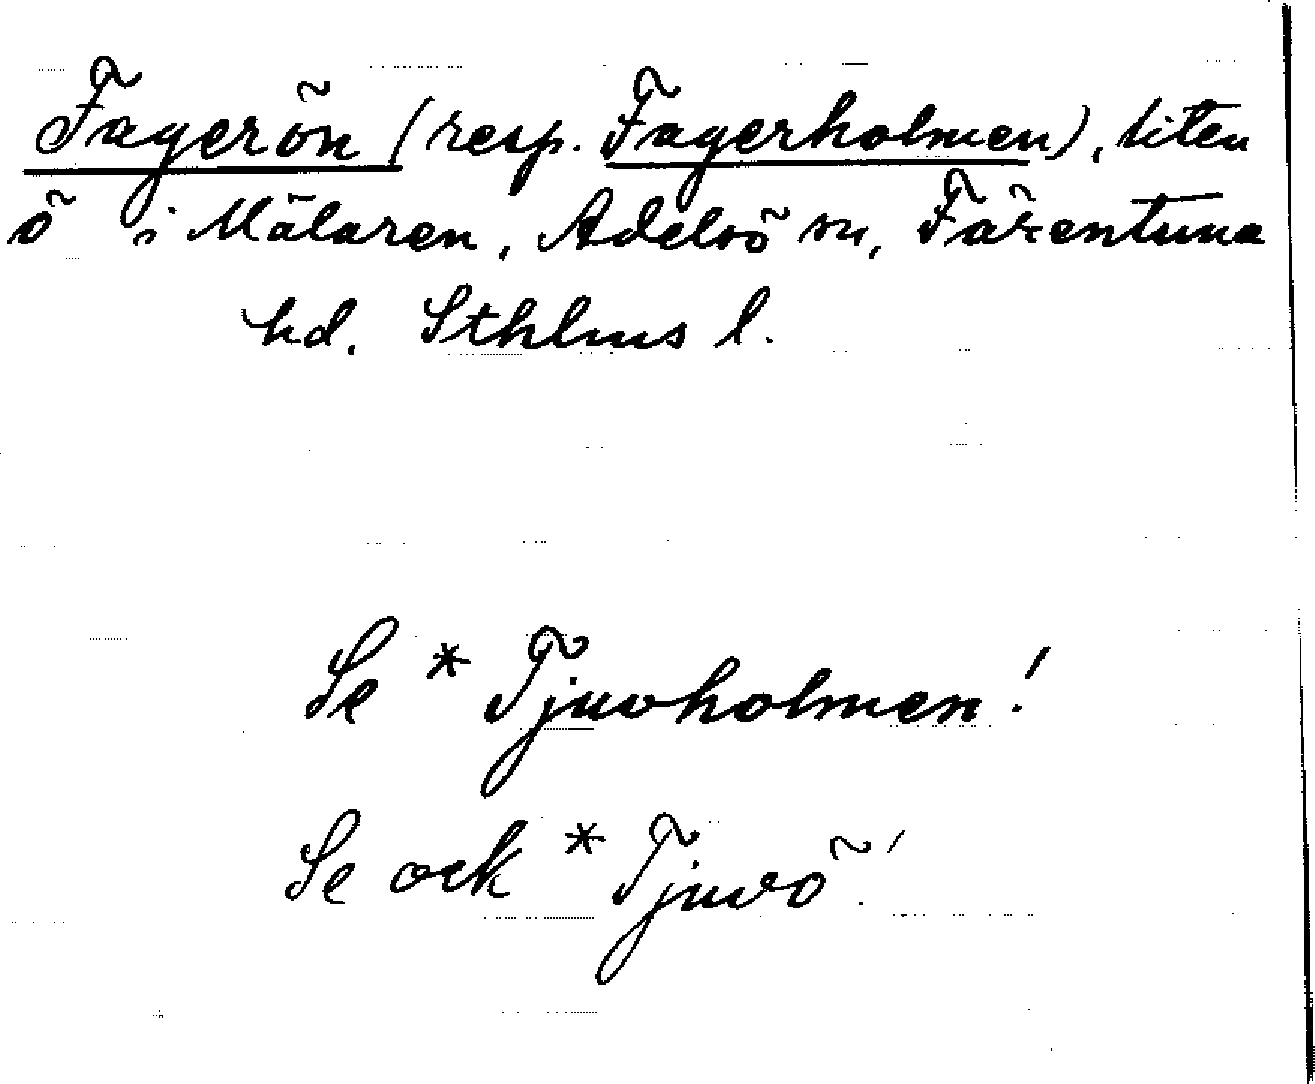 Fagerön (resp. Fagerholmen), liten
ö i Mälaren, Adelsö sn, Färentuna
hd. Sthlms l.
Se * Tjuvholmen!
Se ock * Tjuvö!